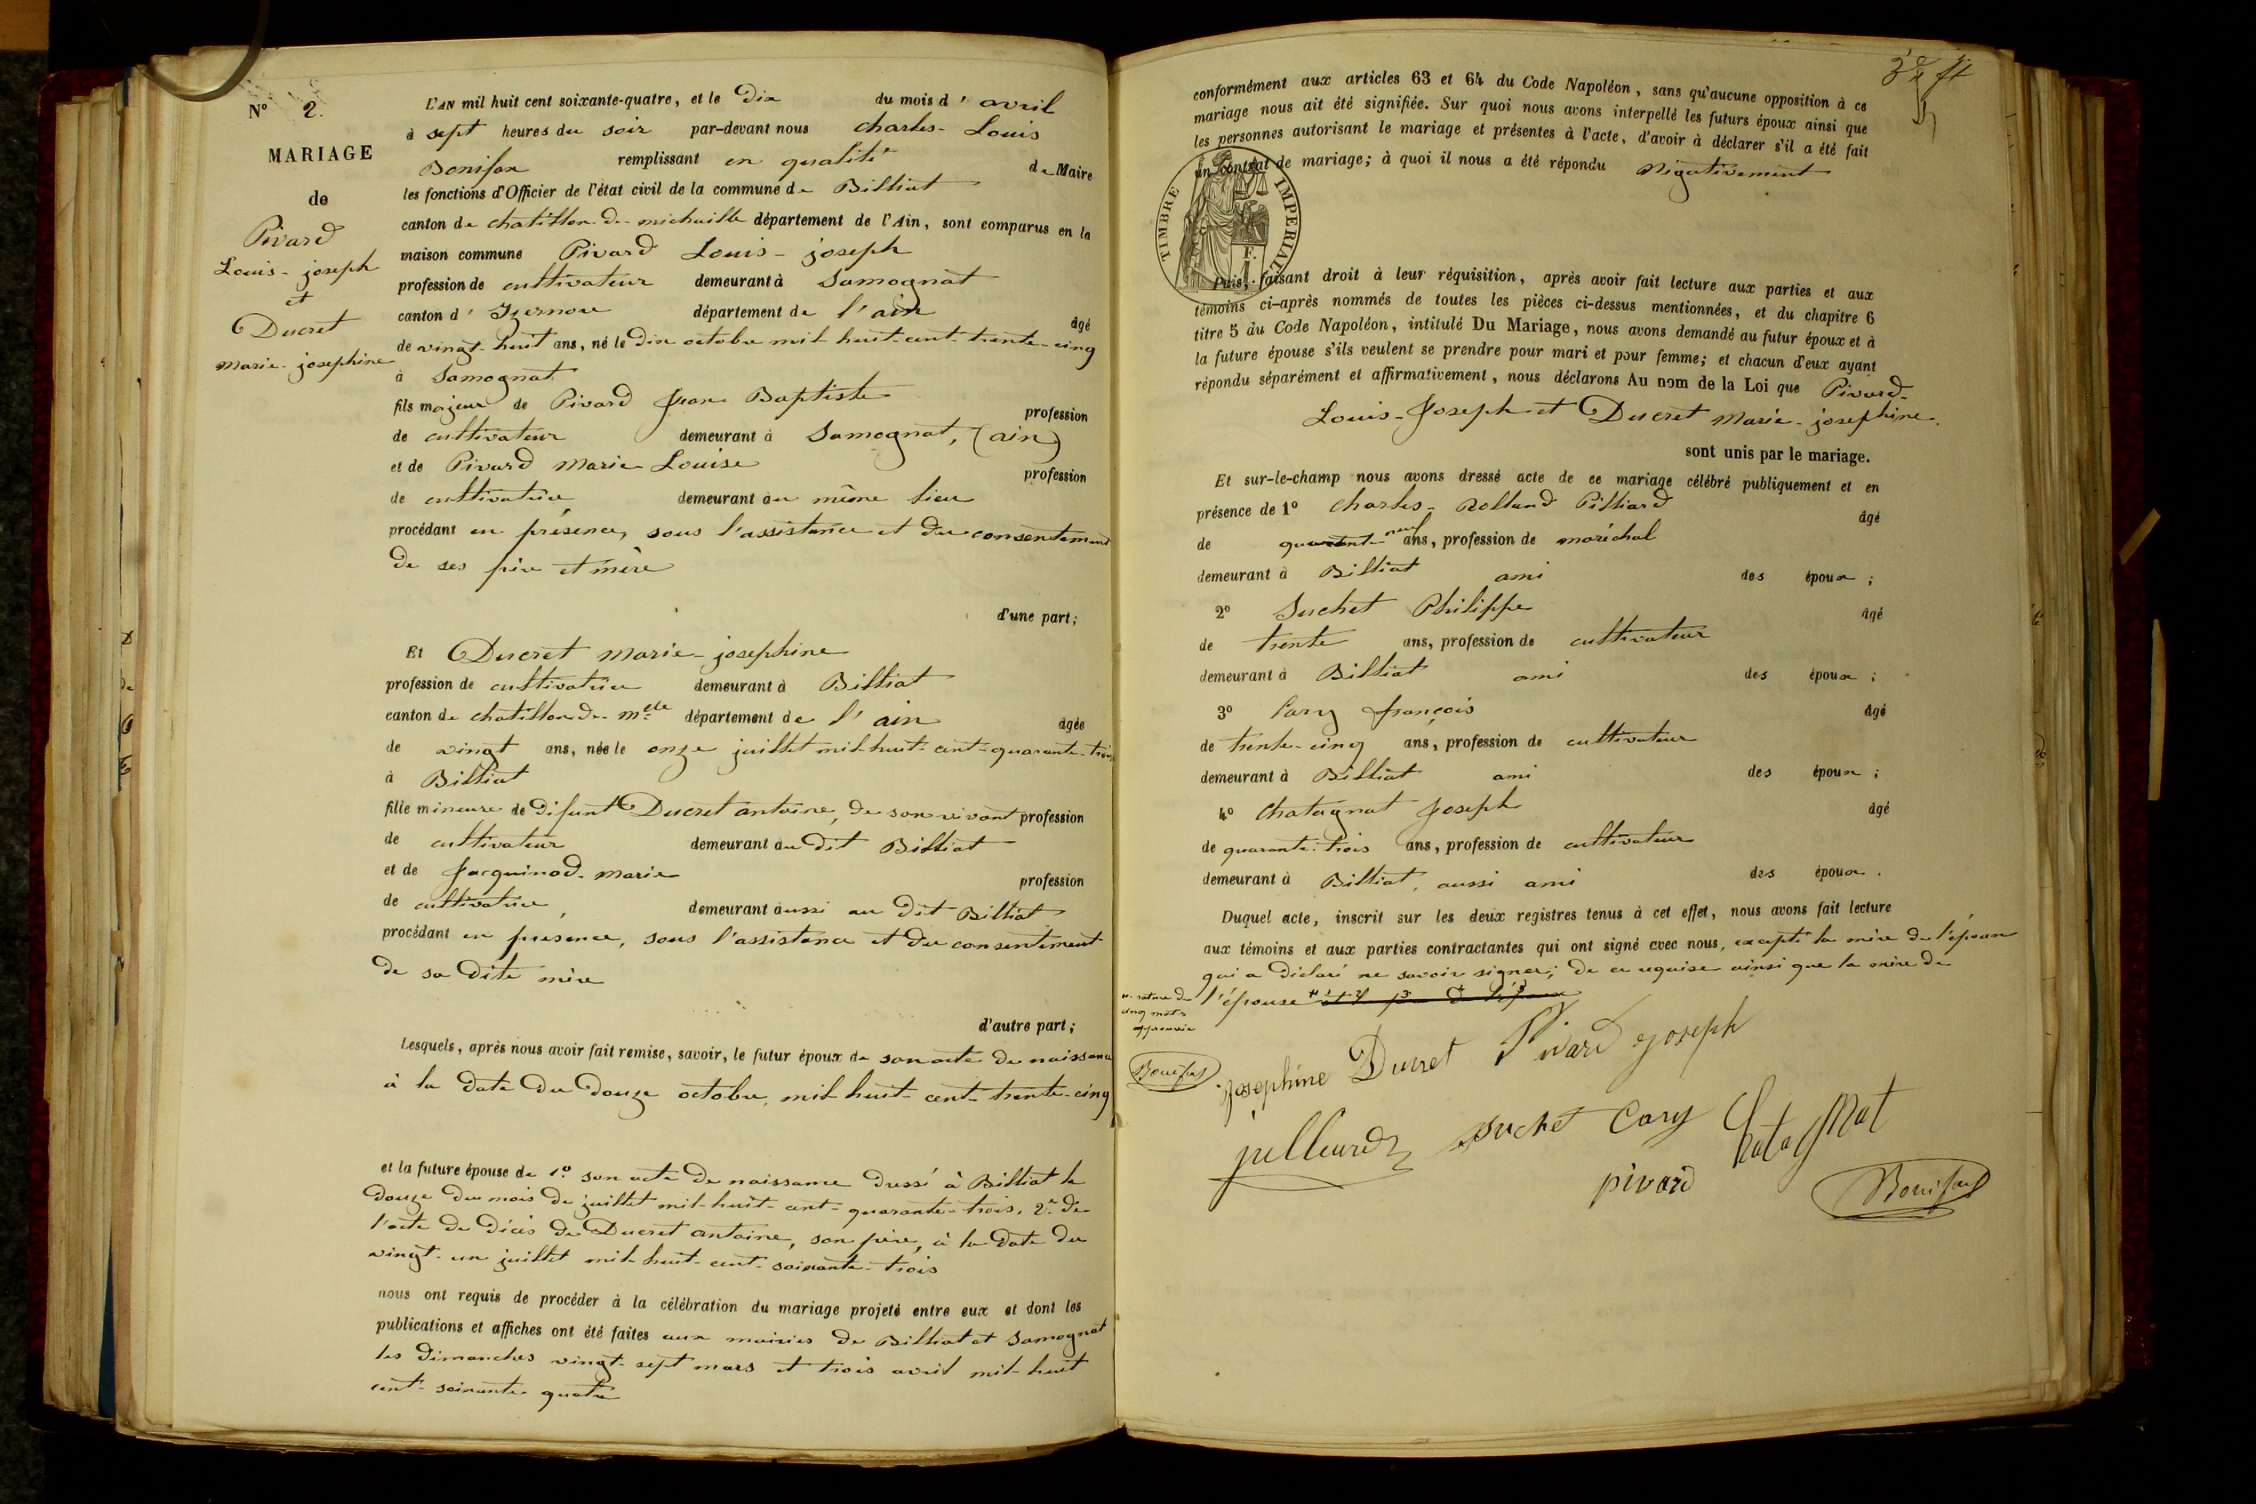 N° 2.
MARIAGE
de
Pivard
Louis-joseph
et
Ducret
marie-josephine
L'AN mil huit cent soixante-quatre, et le Dix du mois d'avril
à sept heures du soir par-devant nous charles-Louis
Bonifax remplissant en qualité de Maire
les fonctions d'Officier de l'état civil de la commune de Billiat
canton de chatillon-de-michaille département de l'Ain, sont comparus en la
maison commune Pivard Louis-joseph
profession de cultivateur demeurant à Samognat
canton d'Izernore département de l'ain âgé
de vingt-huit ans, né le Dix octobre mil huit-cent-trente-cinq
à Samognat
fils majeur de Pivard Jean Baptiste profession
de cultivateur demeurant à Samognat, (ain)
et de Pivard marie Louise profession
de cultivatrice demeurant au même lieu
procédant en présence, sous l'assistance et du consentement
de ses père et mère
d'une part;
Et Ducret marie-josephine
profession de cultivatrice demeurant à Billiat
canton de chatillon de mlle département de l'ain âgée
de vingt ans, née le onze juillet mil-huit-cent-quarante-trois
à Billiat
fille mineure de défunt Ducret antoine, de son vivant profession
de cultivateur demeurant au dit Billiat
et de Jacquinod-marie profession
de cultivatrice, demeurant aussi au dit Billiat
procédant en présence, sous l'assistance et du consentement
de sa dite mère
d'autre part;
Lesquels, après nous avoir fait remise, savoir, le futur époux de son acte de naissance
à la date du douze octobre mil-huit-cent-trente-cinq
et la future épouse de 1° son acte de naissance dressé à Billiat le
douze du mois de juillet mil-huit-cent-quarante-trois, 2° de
l'acte de décès de Ducret antoine, son père, à la date du
vingt-un juillet mil-huit-cent-soixante-trois
nous ont requis de procéder à la célébration du mariage projeté entre eux et dont les
publications et affiches ont été faites aux mairies de Billiat et Samognat
les dimanches vingt-sept mars et trois avril mil-huit
cent-soixante quatre
conformément aux articles 63 et 64 du Code Napoléon, sans qu'aucune opposition à ce
mariage nous ait été signifiée. Sur quoi nous avons interpellé les futurs époux ainsi que
les personnes autorisant le mariage et présentes à l'acte, d'avoir à déclarer s'il a été fait
un contrat de mariage; à quoi il nous a été répondu Négativement
TIMBRE IMPERIAL
F.
Puis, faisant droit à leur réquisition, après avoir fait lecture aux parties et aux
témoins ci-après nommés de toutes les pièces ci-dessus mentionnées, et du chapitre 6
titre 5 du Code Napoléon, intitulé Du Mariage, nous avons demandé au futur époux et à
la future épouse s'ils veulent se prendre pour mari et pour femme; et chacun d'eux ayant
répondu séparément et affirmativement, nous déclarons Au nom de la Loi que Pivard-
Louis-Joseph et Ducret marie-josephine.
sont unis par le mariage.
Et sur-le-champ nous avons dressé acte de ce mariage célébré publiquement et en
présence de 1° charles-Rolland Pilliard âgé
de quarante-neuf ans, profession de maréchal
demeurant à Billiat ami des époux;
2° Suchet Philippe âgé
de trente ans, profession de cultivateur
demeurant à Billiat ami des époux;
3° Cary françois âgé
de trente-cinq ans, profession de cultivateur
demeurant à Billiat ami des époux;
4° Chatagnat Joseph âgé
de quarante-trois ans, profession de cultivateur
demeurant à Billiat, aussi ami des époux.
Duquel acte, inscrit sur les deux registres tenus à cet effet, nous avons fait lecture
aux témoins et aux parties contractantes qui ont signé avec nous, excepté la mère de l'époux
qui a déclaré ne savoir signer; de ce requise ainsi que la mère de
l'épouse
rature de
cinq mots
approuvée
Bonifax
josephine Ducret Pivard joseph
suchet Cary Chatagnat
pivard
Bonifax